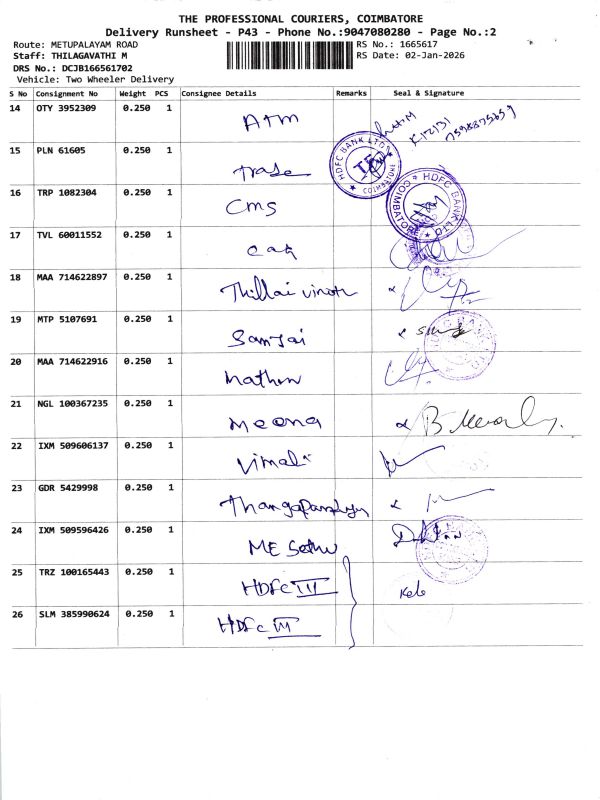 THE PROFESSIONAL COURIERS, COIMBATORE
Delivery Runsheet - P43 - Phone No.:9047080280 - Page No.:2
Route: METUPALAYAM ROAD RS No.: 1665617
Staff: THILAGAVATHI M RS Date: 02-Jan-2026
DRS No.: DCJB166561702
Vehicle: Two Wheeler Delivery
S No Consignment No Weight PCS Consignee Details Remarks Seal & Signature
14 OTY 3952309 0.250 1 ATM
15 PLN 61605 0.250 1 HDFC BANK LTD COIMBATORE
16 TRP 1082304 0.250 1 CMS HDFC BANK LTD COIMBATORE
17 TVL 60011552 0.250 1
18 MAA 714622897 0.250 1 Thillai vinoth
19 MTP 5107691 0.250 1 Sanjai
20 MAA 714622916 0.250 1 Mathew
21 NGL 100367235 0.250 1 Meena
22 IXM 509606137 0.250 1 Vimal
23 GDR 5429998 0.250 1
24 IXM 509596426 0.250 1 ME Sethu
25 TRZ 100165443 0.250 1 HDFC III
26 SLM 385990624 0.250 1 HDFC III